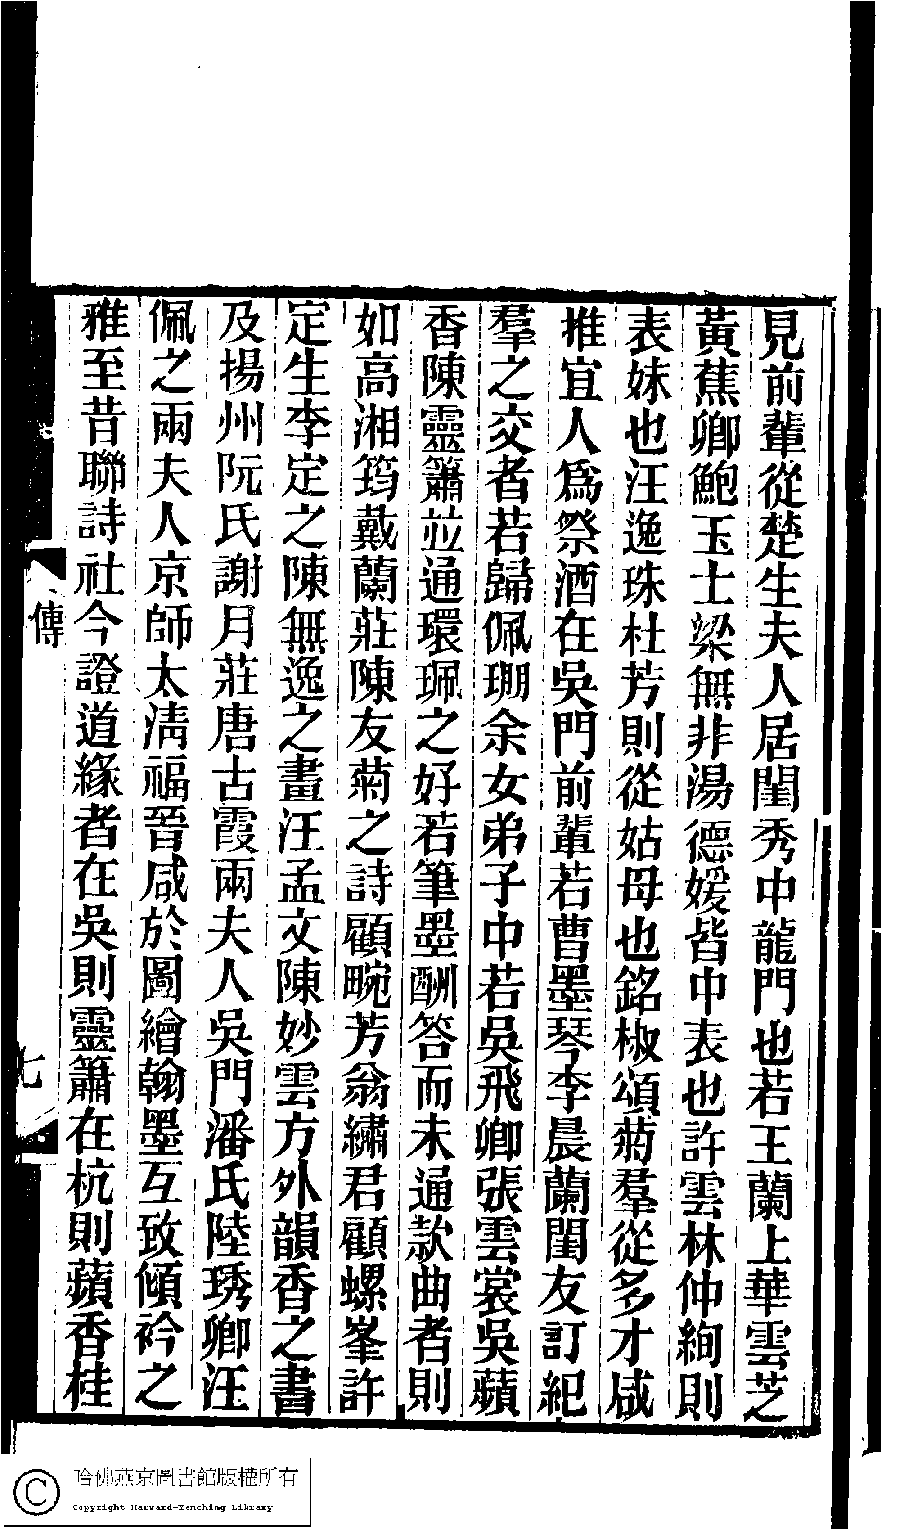 見前輩從楚生夫人居閨秀中龍門也若王蘭上華雲芝
黃蕉卿鮑玉士梁無非湯德媛皆中表也許雲林仲絢則
表妹也汪逸珠杜芳則從姑母也銘椒頌菊羣從多才咸
推宜人爲祭酒在吳門前輩若曹墨琴李晨蘭閨友訂紀
羣之交者若歸佩珊余女弟子中若吳飛卿張雲裳吳蘋
香陳靈簫並通環珮之好若筆墨酬答而未通款曲者則
如高湘筠戴蘭莊陳友菊之詩顧畹芳翁繡君顧螺峯許
定生李定之陳無逸之畫汪孟文陳妙雲方外韻香之書
及揚州阮氏謝月莊唐古霞兩夫人吳門潘氏陸琇卿汪
佩之兩夫人京師太淸福晉咸於圖繪翰墨互致傾衿之
雅至昔聯詩社今證道緣者在吳則靈簫在杭則蘋香桂
傳
七
哈佛燕京圖書館版權所有
Copyright Harvard-Yenching Library